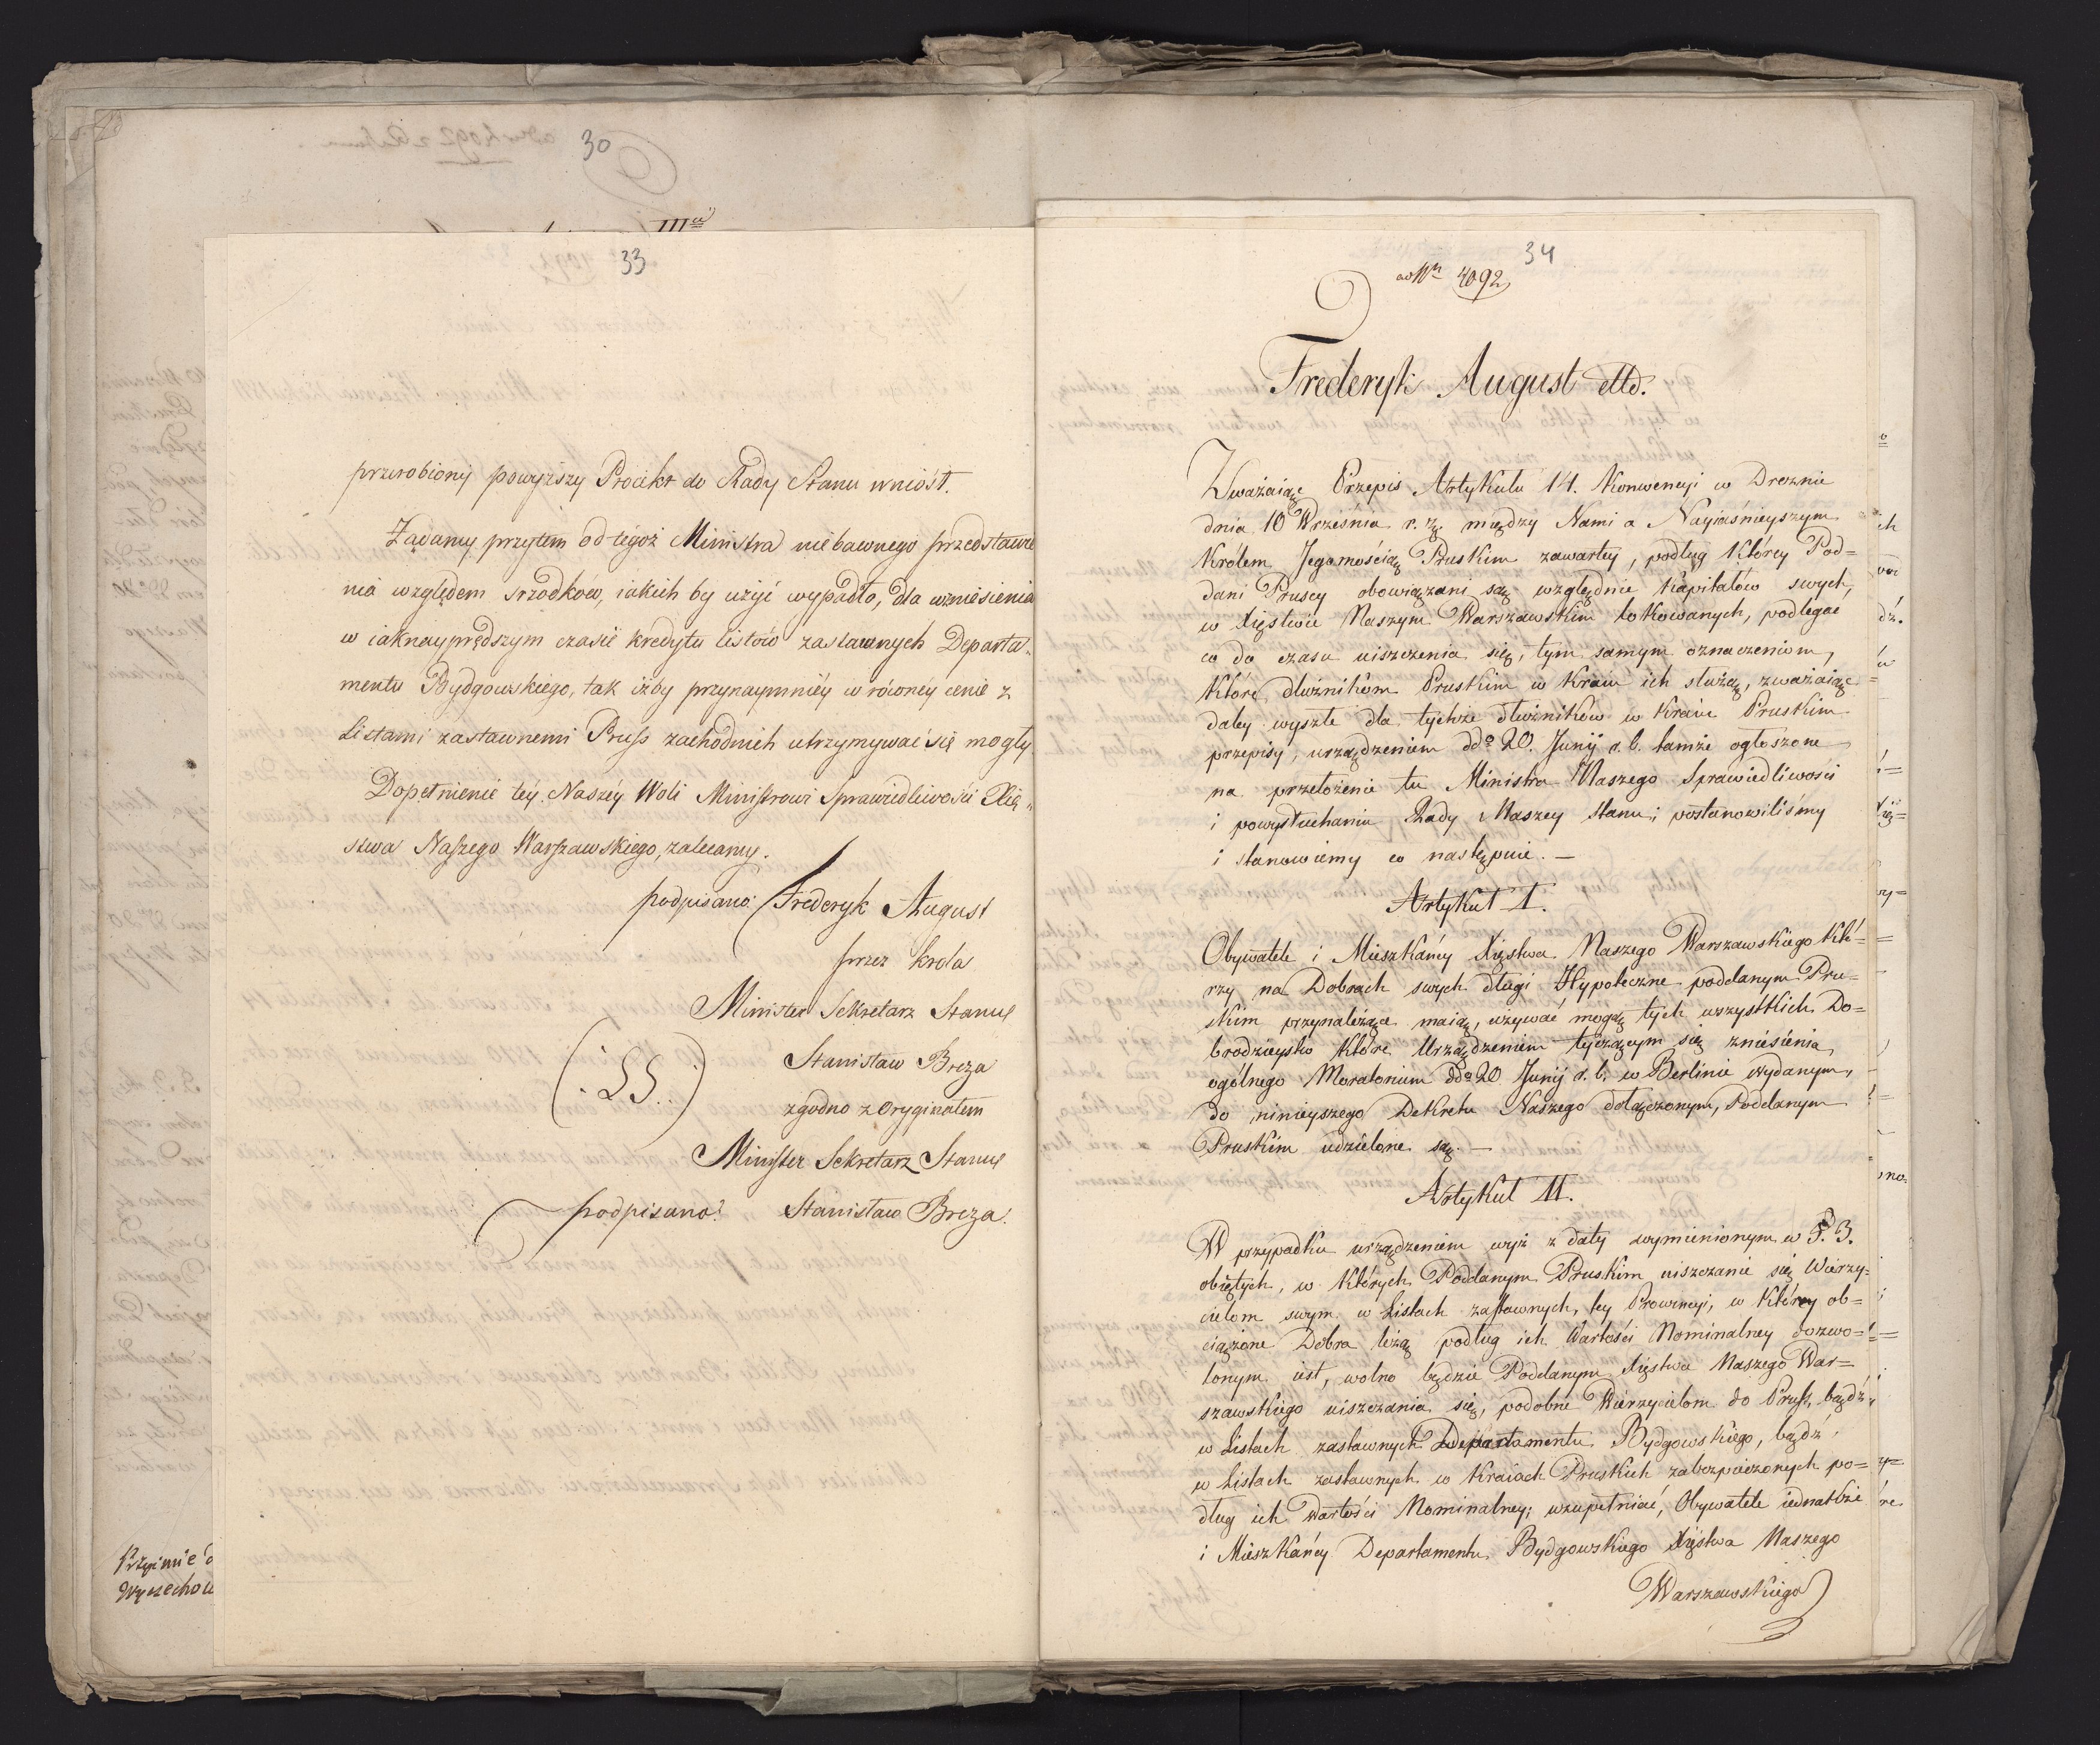 30
33
przerobiony powyższy Proiekt do Rady Stanu wniósł.
Żądamy przytem od tegoż Ministra niebawnego przedstawie
nia względem srzodków, iakich by użyć wypadło, dla wzniesienia
w iaknayprędszym czasie kredytu listów zastawnych Departa-
mentu Bydgowskiego, tak iżby przynaymniéy w równéy cenie z
Listami zastawnemi Pruss zachodnich utrzymywać się mogły.
Dopełnienie téy Naszéy Woli Ministrowi Sprawiedliwości Xię„
stwa Naszego Warszawskiego, zalecamy.
podpisano: Frederyk August
przez króla
Minister Sekretarz Stanu
Stanisław Breza
(: LS. :)
zgodno z Oryginałem
Minister Sekretarz Stanu
podpisano: Stanisław Breza.
Przyimie
Wyszechow
34
ad Nr 4092
Frederyk August etto.
Zważaiąc Przepis Artykułu 14. Konwencyi w Dreznie
dnia 10 Września r. z. między Nami a Nayiaśnieyszym
Królem Jegomością Pruskim zawartey, podług którey Pod=
dani Pruscy obowiązani są względnie kapitałów swych,
w Xięstwie Naszym Warszawskim lokowanych, podlegać
co do czasu uiszczenia się, tym samym oznaczeniom,
które dłużnikom Pruskim w Kraiu ich służą, zważaiąc
daley wyszłe dla tychże dłużników w Kraiu Pruskim
przepisy, urządzeniem ddo 20. Junij r. b. tamże ogłoszone
na przełożenie tu Ministra Naszego Sprawiedliwości
i powysłuchaniu Rady Naszey Stanu; postanowiliśmy
i stanowiemy co następuie. —
Artykuł I.
Obywatele i Mieszkańcy Xięstwa Naszego Warszawskiego Któ=
rzy na Dobrach swych długi Hypoteczne poddanym Pru=
skim przynależące maią, używać mogą tych wszystkich Do=
brodzieystw które Urządzeniem tyczącym się zniesienia
ogólnego Moratorium ddo 20 Junij r. b. w Berlinie wydanym,
do ninieyszego Dekretu Naszego dołączonym, Poddanym
Pruskim udzielone są. —
Artykuł II.
W przypadku urządzeniem wyż z daty wymienionym w §. 3.
obiętych, w których Poddanym Pruskim uiszczanie się Wierzy=
cielom swym w Listach zastawnych, tey Prowincyi, w którey ob=
ciążone Dobra leżą podług ich Wartości Nominalney dozwo=
lonym iest, wolno będzie Poddanym Xięstwa Naszego War=
szawskiego uiszczania się, podobne Wierzycielom do Pruss, bądź
w Listach zastawnych Departamentu Bydgowskiego, bądź
w Listach zastawnych w Kraiach Pruskich zabezpieczonych po=
dług ich Wartości Nominalney; uzupełniać, Obywatele iednakże
i Mieszkańcy Departamentu Bydgowskiego Xięstwa Naszego
Warszawskiego